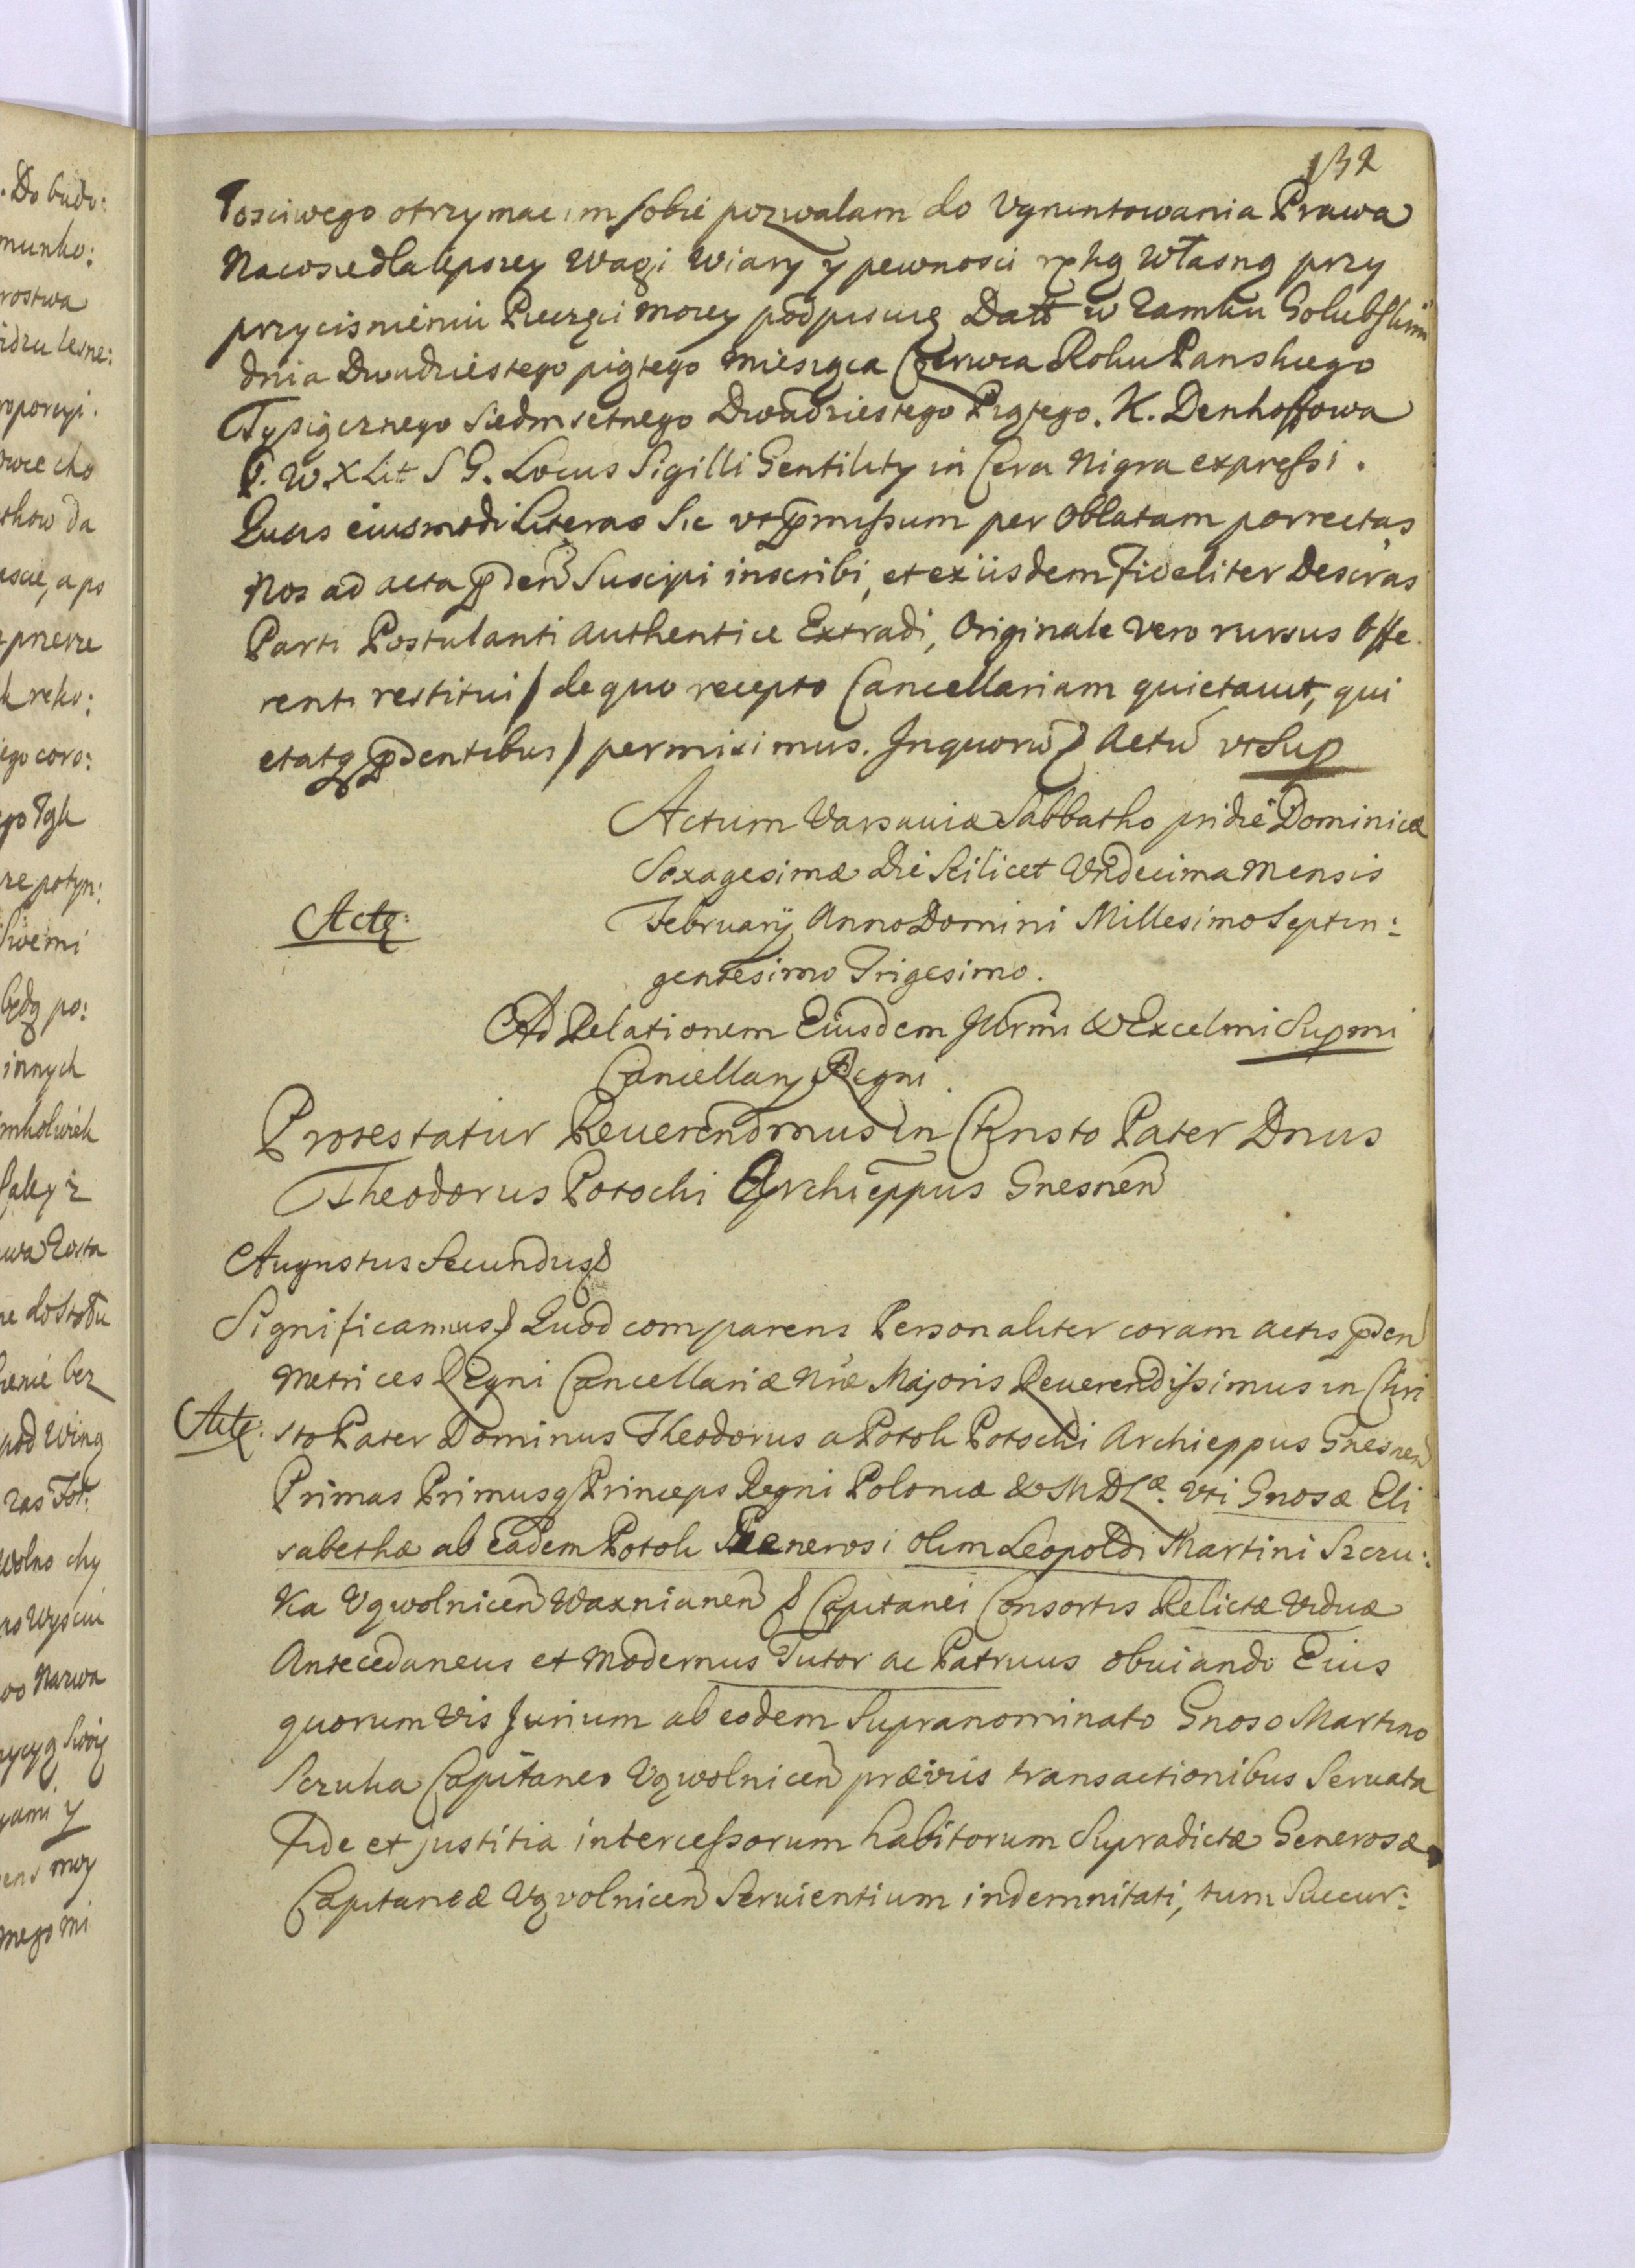 132
łosciwego otrzymac im sobie pozwalam do Vgruntowania Prawa
Na co sie dla lepszey Wagi Wiary y pewnosci ręką Własną przy
przycisnieniu Pieczęci moiey podpisuię Datt w Zamku Golubskim
dnia Dwudziestego piątego miesząca Czerwca Roku Panskiego
Tysiącznego Siedmsetnego Dwudziestego Piątego. K. Denhoffowa
P. W. X Lit S G. Locus Sigilli Gentility in Cera Nigra expressi.
Quas eiusmodi Literas Sic vt pmissum per Oblatam porrectas
Nos ad acta pden Suscipi inscribi, et ex iisdem Fideliter Descrās
Parti Postulanti authentice Extradi, Originale vero rursus Offe
renti restitui / de quo recepto Cancellariam quietauit, qui
etatq pdentibus / permisimus. In quorū ) Actū vt Sup
Actum Varsauiæ Sabbatho pridie Dominicæ
Sexagesimæ die Scilicet Vndecima Mensis
Actę:
February Anno Domini Millesimo Septin:
gentesimo Trigesimo.
Ad Relationem Eiusdem Illrmi & Excelmi Supmi
Cancellary Regni.
Protestatur Reuerendmus in Christo Pater Dnus
Theodorus Potocki Archieppus Gnesnen
Augustus Secundus
Significamus Quod comparens Personaliter coram actis pden
Metrices Regni Cancellariæ Nræ Majoris Reuerendissimus in Chri
Actę:
sto Pater Dominus Theodorus a Potok Potocki Archieppus Gnesnen
Primas Primusq Princeps Regni Poloniæ & M D L æ. Vti Gnosæ Eli
sabethæ ab Eadem Potok Generosi olim Leopoldi Martini Szczu:
Ka Vąwolnicen Waxnianen Capitanei Consortis Relictæ Viduæ
Antecedaneus et Modernus Tutor ac Patruus obuiando Eius
quorumvis Jurium ab eodem Supranominato Gnoso Martino
Sczuka Capitaneo Vąwolnicen præviis transactionibus Seruata
Fide et justitia intercessorum habitorum Supradictæ Generosæ
Capitaneæ Vąvolnicen Seruientium indemnitati, tum Succur: